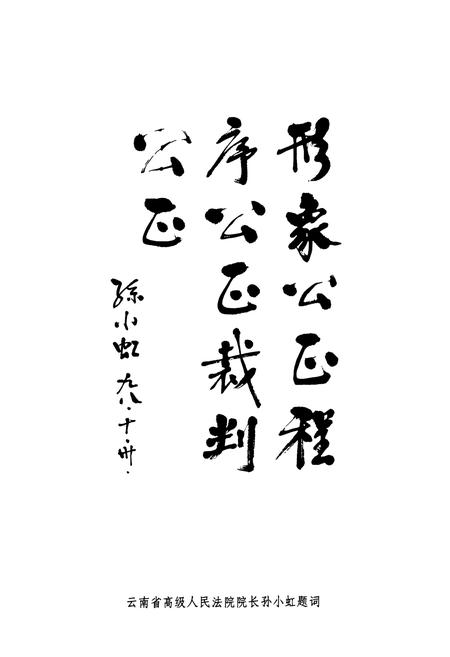 形象公正程
序公正裁判
公正
孙小虹 九八·十·卅·
云南省高级人民法院院长孙小虹题词